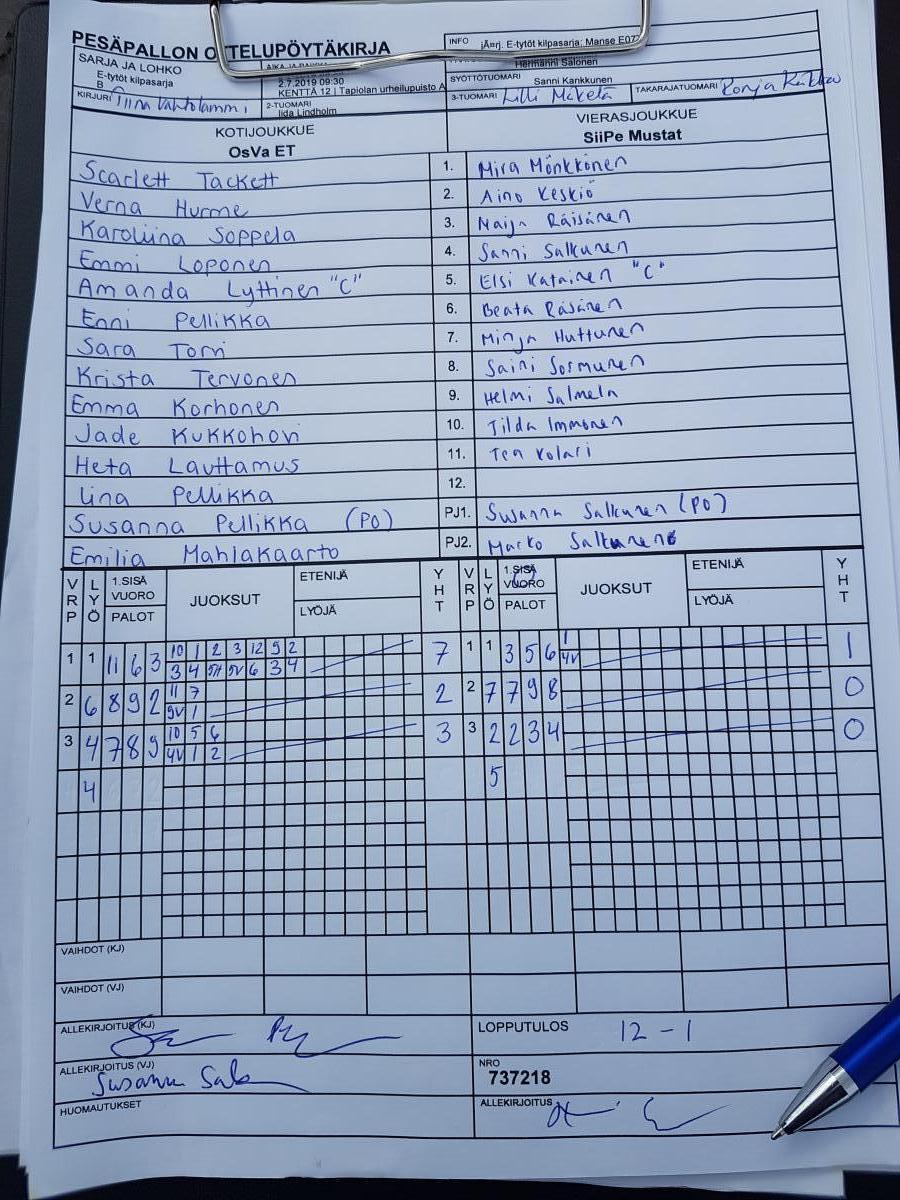 PESÄPALLON OTTELUPÖYTÄKIRJA
INFO jÄ¤rj. E-tytöt kilpasarja: Manse E07
SARJA JA LOHKO
E-tytöt kilpasarja
B
AIKA JA PAIKKA
2.7.2019 09:30
KENTTÄ 12 | Tapiolan urheilupuisto A
Hermanni Salonen
SYÖTTÖTUOMARI Sanni Kankkunen
KIRJURI Tiina Vahtolammi
2-TUOMARI
Iida Lindholm
3-TUOMARI Lilli Mäkelä
TAKARAJATUOMARI Ronja
KOTIJOUKKUE
OsVa ET
VIERASJOUKKUE
SiiPe Mustat
Scarlett Tackett 1. Mira Mönkkönen
Verna Hurme 2. Aino Keskiö
Karoliina Soppela 3. Maija Räisänen
Emmi Loponen 4. Sanni Salkunen
Amanda Lyttinen "C" 5. Elsi Katainen "C"
Enni Pellikka 6. Beata Räsänen
Sara Torvi 7. Minja Huttunen
Krista Tervonen 8. Saini Sormunen
Emma Korhonen 9. Helmi Salmela
Jade Kukkohovi 10. Tilda Immonen
Heta Lauttamus 11. Tea Kolari
Iina Pellikka 12.
Susanna Pellikka (PO) PJ1. Susanna Salkunen (PO)
Emilia Mahlakaarto PJ2. Marko Salkunen
VRP LYÖ 1.SISÄ VUORO PALOT JUOKSUT ETENIJÄ LYÖJÄ YHT VRP LYÖ 1.SISÄ VUORO PALOT JUOKSUT ETENIJÄ LYÖJÄ YHT
1 1 11 6 3 10 1 2 3 12 9 2 7 1 1 3 5 6 1 1
3 4 5H 5V 6 3 4 4V
2 6 8 9 2 11 7 2 2 7 7 9 8 0
9V 1
3 4 7 8 9 10 5 6 3 3 2 2 3 4 0
4V 1 2
4 5
VAIHDOT (KJ)
VAIHDOT (VJ)
ALLEKIRJOITUS (KJ)
LOPPUTULOS 12 - 1
ALLEKIRJOITUS (VJ) Susanna
NRO
737218
HUOMAUTUKSET
ALLEKIRJOITUS